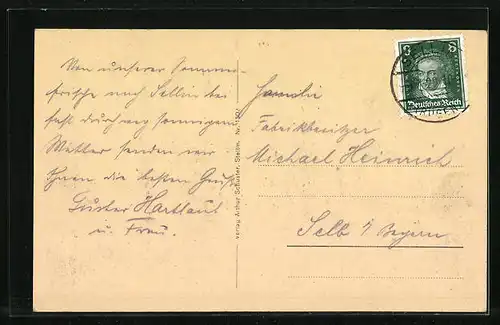 Von unserer Sommer-
frische nach Sellin bei
fast durchweg sonnigem
Wetter senden wir
Ihnen die besten Grüße
Hartlaub
u. Frau.
Verlag Arthur Schuster, Stettin. No.
5 5
Deutsches Reich
Familie
Fabrikbesitzer
Michael Heinrich
Selb i/ Bayern